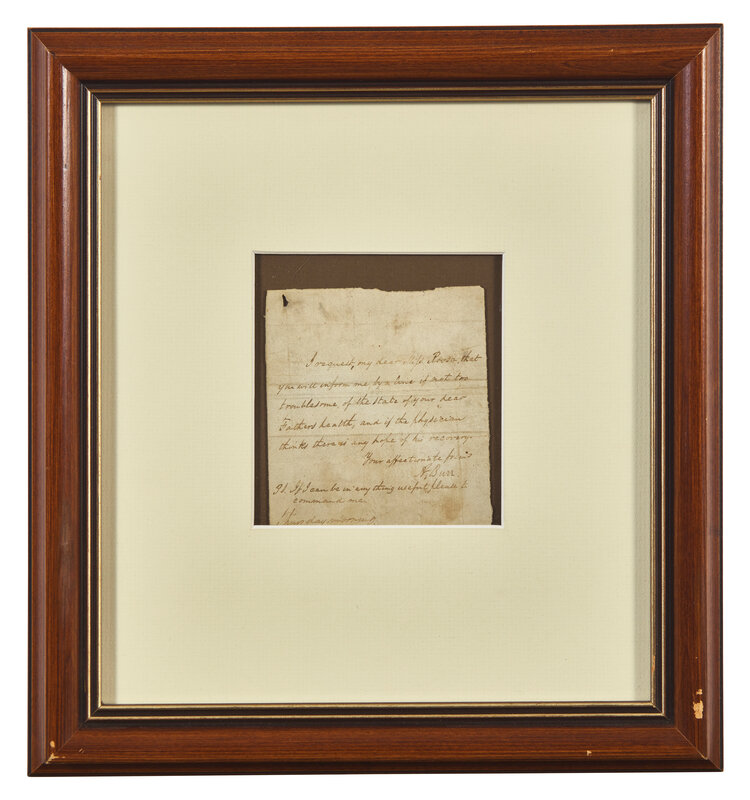 I request, my dear Miss that
you will inform me by a line if not too
troublesome, of the state of your dear
Fathers health, and if the physician
thinks there is any hope of his recovery.
Your affectionate friend
A, Burr
PS. If I can be in any thing useful, please to
command me.
Thursday morning,